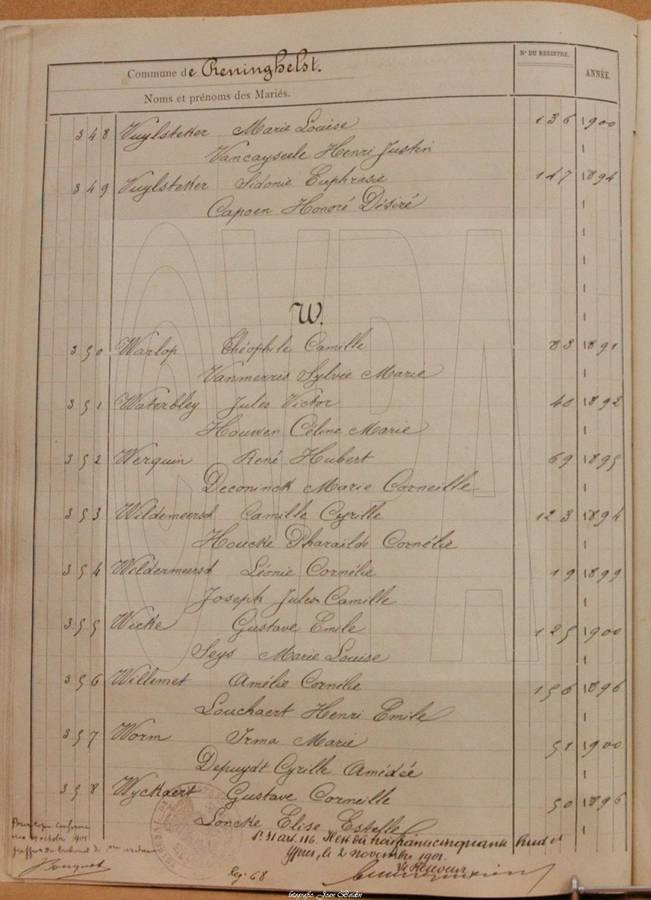 Commune de Reninghelst.
Noms et prénoms des Mariés.
N° DU REGISTRE.
ANNÉE.
348 Vuylsteker Marie Louise 136 1900
Vancayseele Henri Justin
349 Vuylsteker Sidonie Euphrasie 117 1894
Capoen Honoré Désiré
W.
350 Warlop Théophile Camille 83 1891
Vanmerris Sylvie Marie
351 Waterbley Jules Victor 40 1892
Houwen Céline Marie
352 Werquin René Hubert 69 1895
Deconinck Marie Corneille
353 Wildemeersch Camille Cyrille 123 1894
Houcke Pharaïlde Cornélie
354 Wildermeersch Léonie Cornélie 19 1899
Joseph Jules Camille
355 Wicke Gustave Emile 125 1900
Seys Marie Louise
356 Willemet Amélie Cornélie 156 1896
Louchaert Henri Emile
357 Worm Irma Marie 51 1900
Depuydt Cyrille Amédée
358 Wyckaert Gustave Corneille 50 1896
Loncke Elise Estelle
Ypres, le 2 novembre 1901.
Le Receveur
Reg. 68